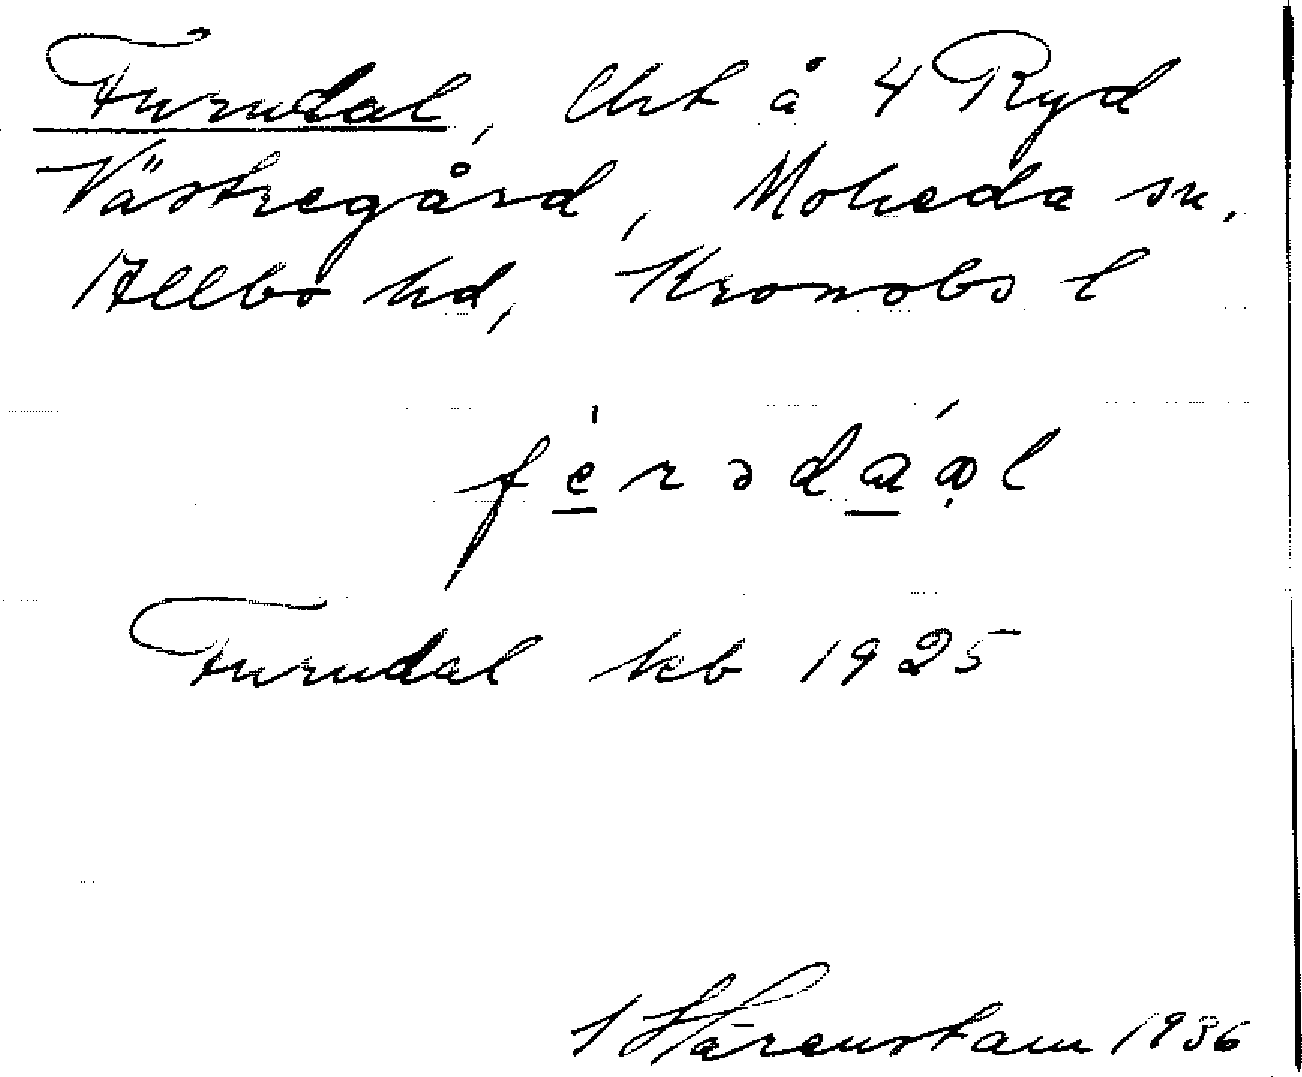 Furudal, Urt å 4 Ryd
Västregård, Moheda sn,
Allbo hd, Kronobs l
férədáαl
Furudal kb 1925
S Härenstam 1936